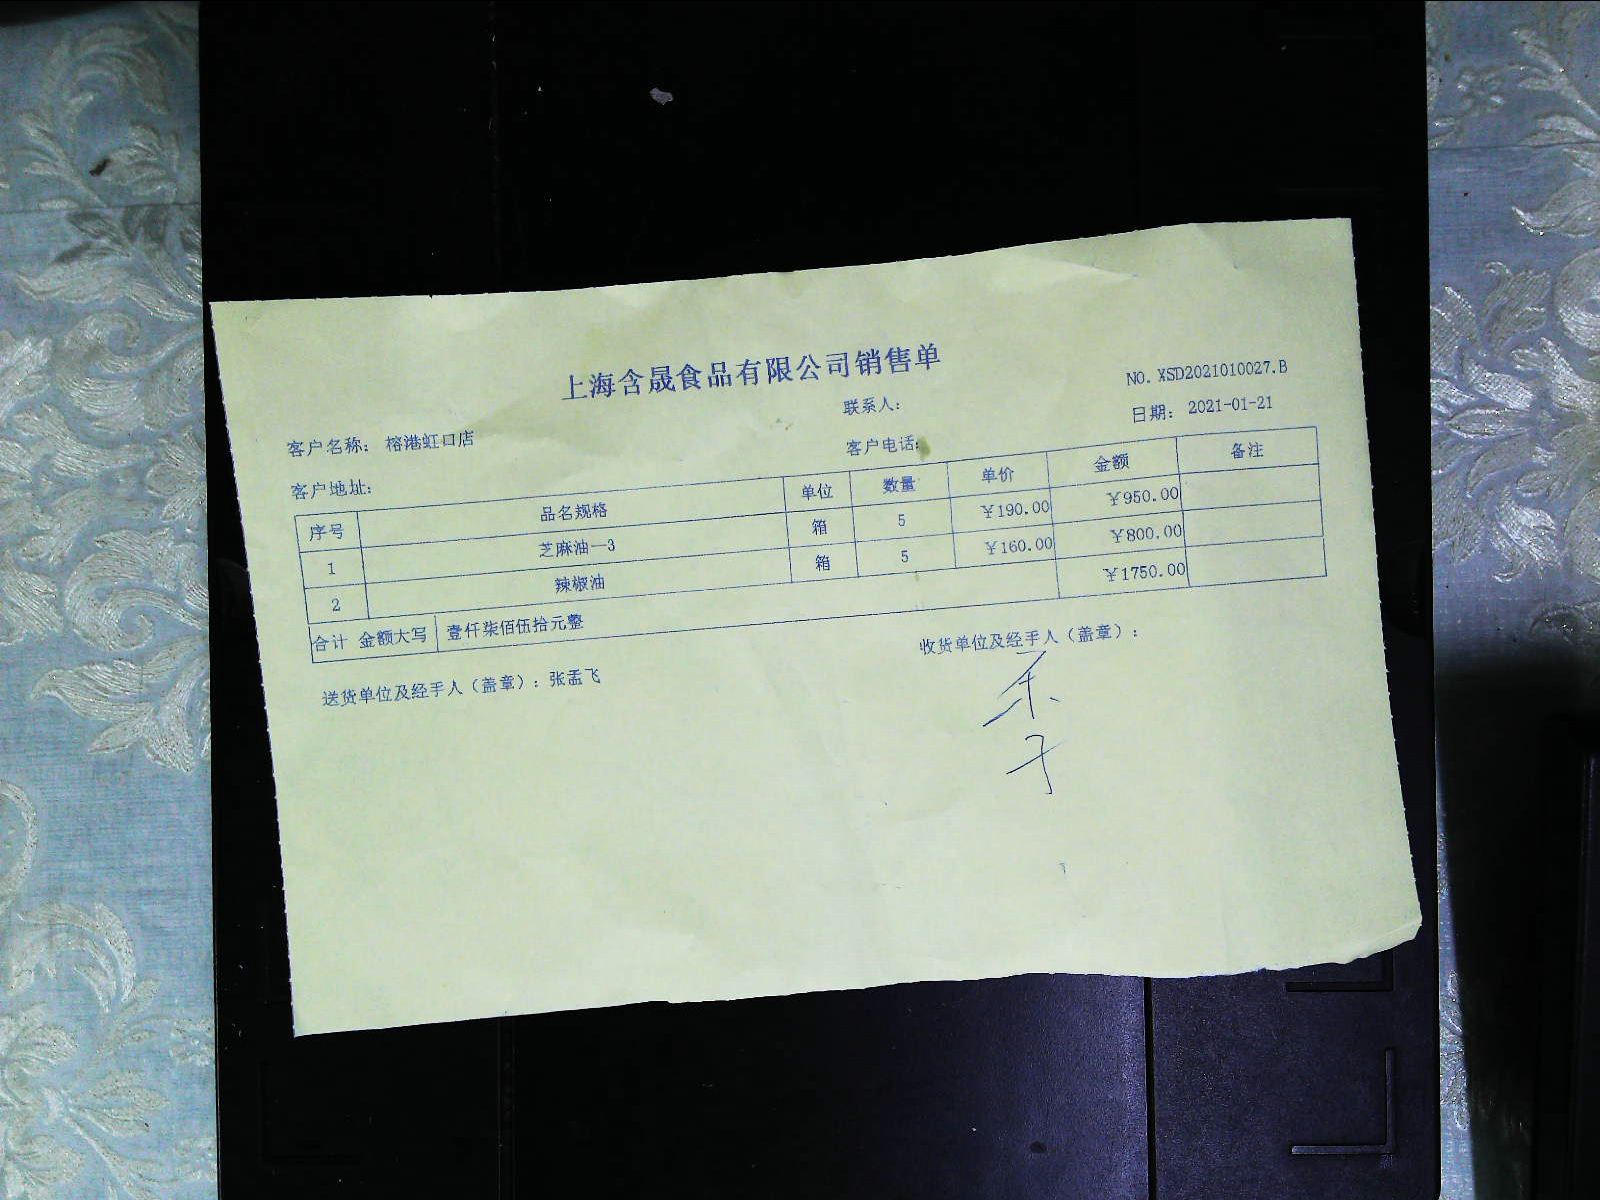 上海含晟食品有限公司销售单
NO. XSD2021010027.B
联系人：
日期： 2021-01-21
客户名称： 榕港虹口店
客户电话：
客户地址：
序号 品名规格 单位 数量 单价 金额 备注
1 芝麻油—3 箱 5 ￥190.00 ￥950.00
2 辣椒油 箱 5 ￥160.00 ￥800.00
合计 金额大写 壹仟柒佰伍拾元整 ￥1750.00
送货单位及经手人（盖章）：张孟飞
收货单位及经手人（盖章）：